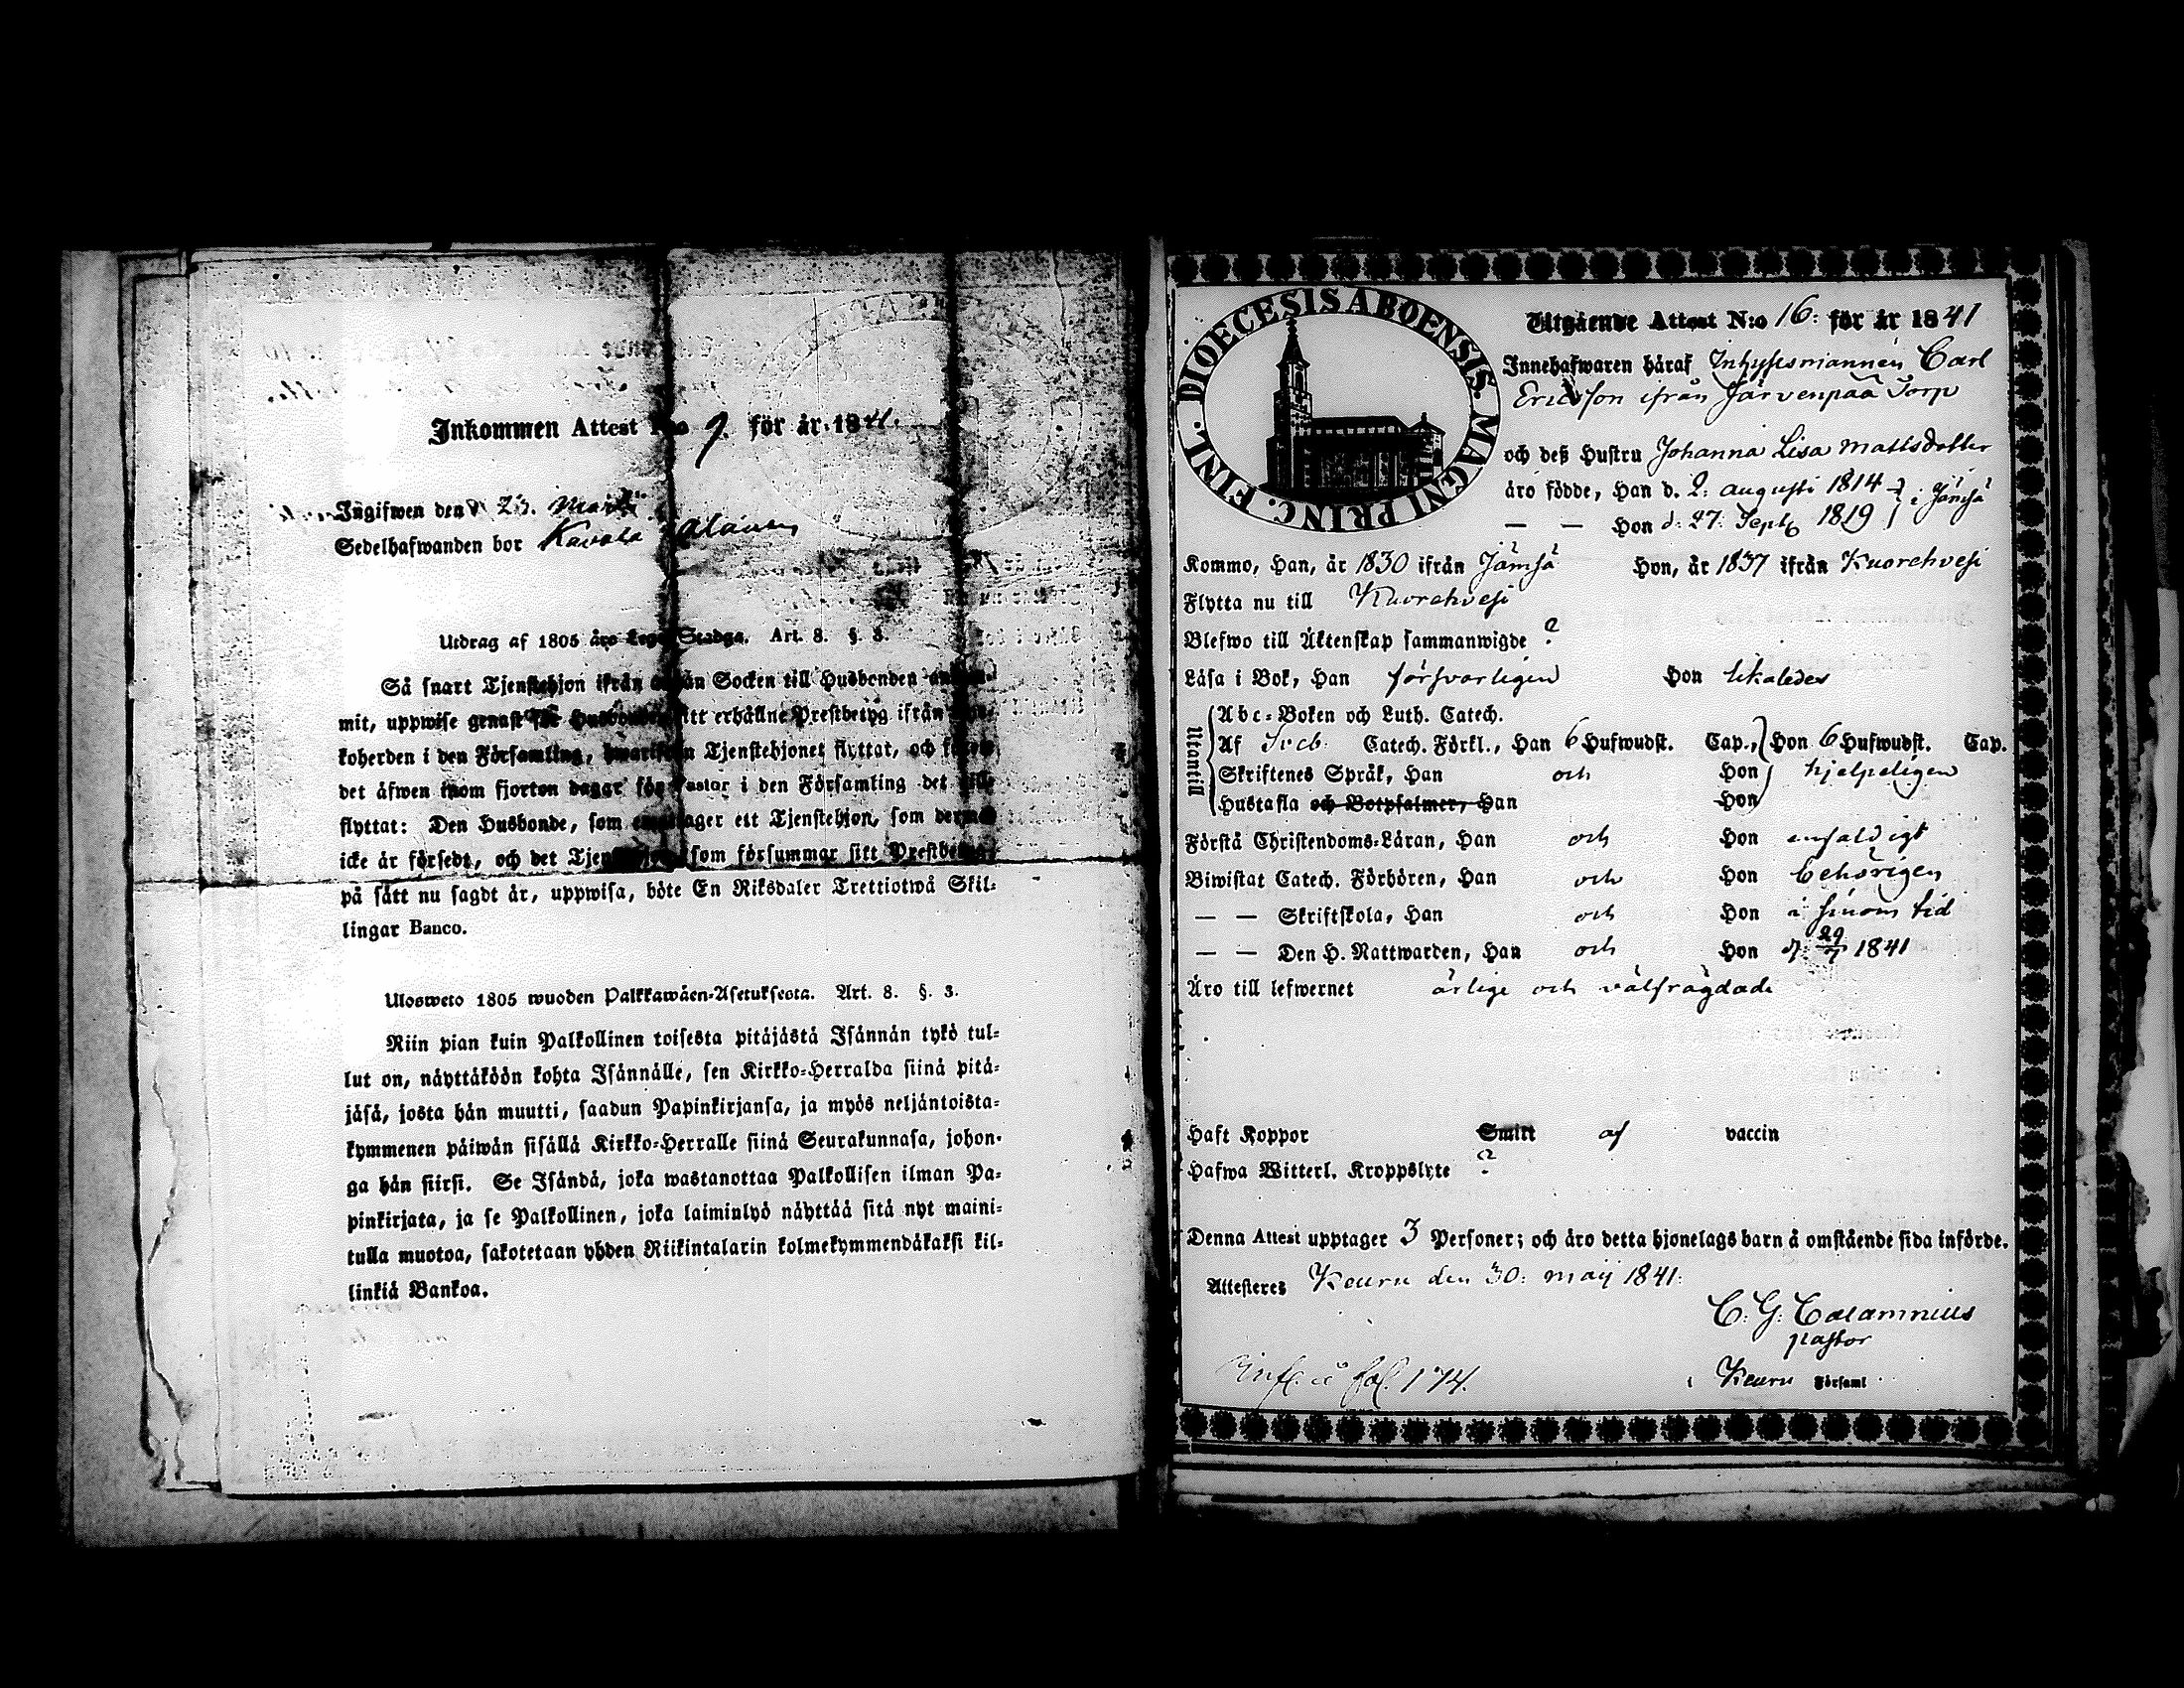 Inkommen Attest N:o 9. för år 1841.
Ingifwen den 23. Maii
Sedelhafwanden bor Kavala
Utdrag af 1805 års Lego Stadga. Art. 8. §. 3.
Så snart Tjenstehjon ifrån annan Socken till Husbonden ankom-
mit, uppwise genast för Husbonden sitt erhållne Prestbetyg ifrån Kyr-
koherden i den Församling, hwarifrån Tjenstehjonet flyttat, och
det äfwen inom fjorton dagar för Pastor i den Församling det till-
flyttat: Den Husbonde, som emottager ett Tjenstehjon, som dermed
icke är försedt, och det Tjenstehjon, som försummar sitt Prestbetyg,
på sätt nu sagdt är, uppwisa, böte En Riksdaler Trettiotwå Skil-
lingar Banco.
Ulosweto 1805 wuoden Palkkawäen-Asetuksesta. Art. 8. §. 3.
Niin pian kuin Palkollinen toisesta pitäjästä Isännän tykö tul-
lut on, näyttäköön kohta Isännälle, sen Kirkko-Herralda siinä pitä-
jäsä, josta hän muutti, saadun Papinkirjansa, ja myös neljäntoista-
kymmenen päiwän sisällä Kirkko-Herralle siinä Seurakunnasa, johon-
ga hän siirsi. Se Isändä, joka wastanottaa Palkollisen ilman Pa-
pinkirjata, ja se Palkollinen, joka laiminlyö näyttää sitä nyt maini-
tulla muotoa, sakotetaan yhden Riikintalarin kolmekymmendäkaksi kil-
linkiä Bankoa.
DIOECESIS ABOENSIS. MAGNI PRINC. FINL.
Utgående Attest N:o 16: för år 1841
Innehafwaren häraf Inhysesmannen Carl
Ericsson ifrån Järvenpää Torp
och deß Hustru Johanna Lisa Mattsdotter
äro födde, Han d. 2: Augusti 1814 } i Jämsä
— — Hon d: 27: Septb 1819
Kommo, Han, år 1830 ifrån Jämsä Hon, år 1837 ifrån Kuorehvesi
Flytta nu till Kuorehvesi
Blefwo till Äktenskap sammanwigde ?
Läsa i Bok, Han försvarligen Hon likaledes
Utantill
Abc-Boken och Luth. Catech.
Af Sveb: Catech. Förkl., Han 6 Hufwudst. Cap., Hon 6 Hufwudst. Cap.
Skriftenes Språk, Han och Hon hjelpeligen
Hustafla och Botpsalmer, Han Hon
Förstå Christendoms-Läran, Han och Hon enfaldigt
Biwistat Catech. Förhören, Han och Hon behörigen
— — Skriftskola, Han och Hon i sinom tid
— — Den H. Nattwarden, Han och Hon d: 29/ 1841
Äro till lefwernet ärlige och välfrägdade
Haft Koppor Smitt af vaccin
Hafwa Witterl. Kroppslyte ?
Denna Attest upptager 3 Personer; och äro detta hjonelags barn å omstående sida införde.
Attesteres Keuru den 30: Maij 1841:
C: G: Calamnius
Pastor
i Keuru Församl
Infl. å fol. 174.